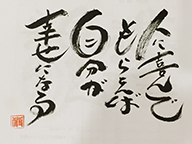 人に喜んで
もらえば
自分が
幸せになる